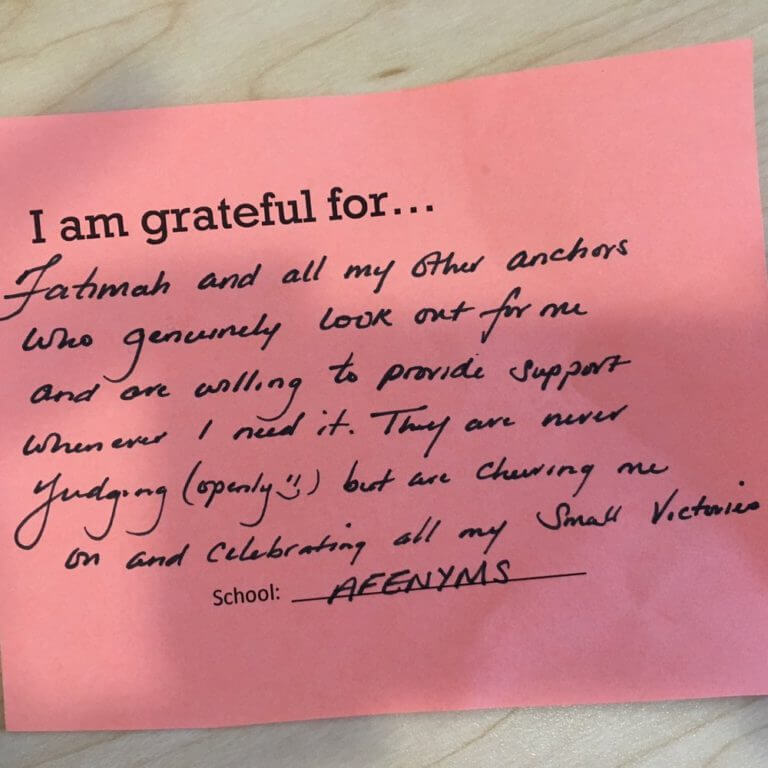 I am grateful for...
Fatimah and all my other anchors
who genuinely look out for me
and are willing to provide support
whenever I need it. They are never
judging (openly☺) but are cheering me
on and celebrating all my small victories
School: AFENYMS